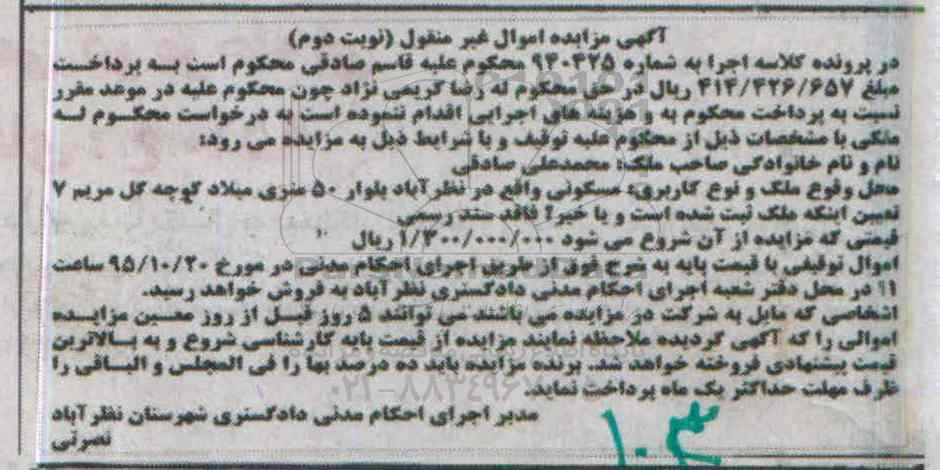 آگهی مزایده اموال غیر منقول (نوبت دوم)
در پرونده کلاسه اجرا به شماره ۹۴۰۴۲۵ محکوم علیه قاسم صادقی محکوم است به پرداخت
مبلغ ۴۱۴/۴۲۶/۶۵۷ ریال در حق محکوم له رضا کریمی نژاد چون محکوم علیه در موعد مقرر
نسبت به پرداخت محکوم به و هزینه های اجرایی اقدام ننموده است به درخواست محکوم له
ملکی با مشخصات ذیل از محکوم علیه توقیف و با شرایط ذیل به مزایده می رود:
نام و نام خانوادگی صاحب ملک: محمدعلی صادقی
محل وقوع ملک و نوع کاربری: مسکونی واقع در نظر آباد بلوار ۵۰ متری میلاد کوچه گل مریم ۷
تعیین اینکه ملک ثبت شده است و یا خیر؟ فاقد سند رسمی
قیمتی که مزایده از آن شروع می شود ۱/۳۰۰/۰۰۰/۰۰۰ ریال
اموال توقیفی با قیمت پایه به شرح فوق از طریق اجرای احکام مدنی در مورخ ۹۵/۱۰/۲۰ ساعت
۱۱ در محل دفتر شعبه اجرای احکام مدنی دادگستری نظر آباد به فروش خواهد رسید.
اشخاصی که مایل به شرکت در مزایده می باشند می توانند ۵ روز قبل از روز معین مزایده
اموالی را که آگهی گردیده ملاحظه نمایند مزایده از قیمت پایه کارشناسی شروع و به بالاترین
قیمت پیشنهادی فروخته خواهد شد. برنده مزایده باید ده درصد بها را فی المجلس و الباقی را
ظرف مهلت حداکثر یک ماه پرداخت نماید.
مدیر اجرای احکام مدنی دادگستری شهرستان نظر آباد
نصرتی